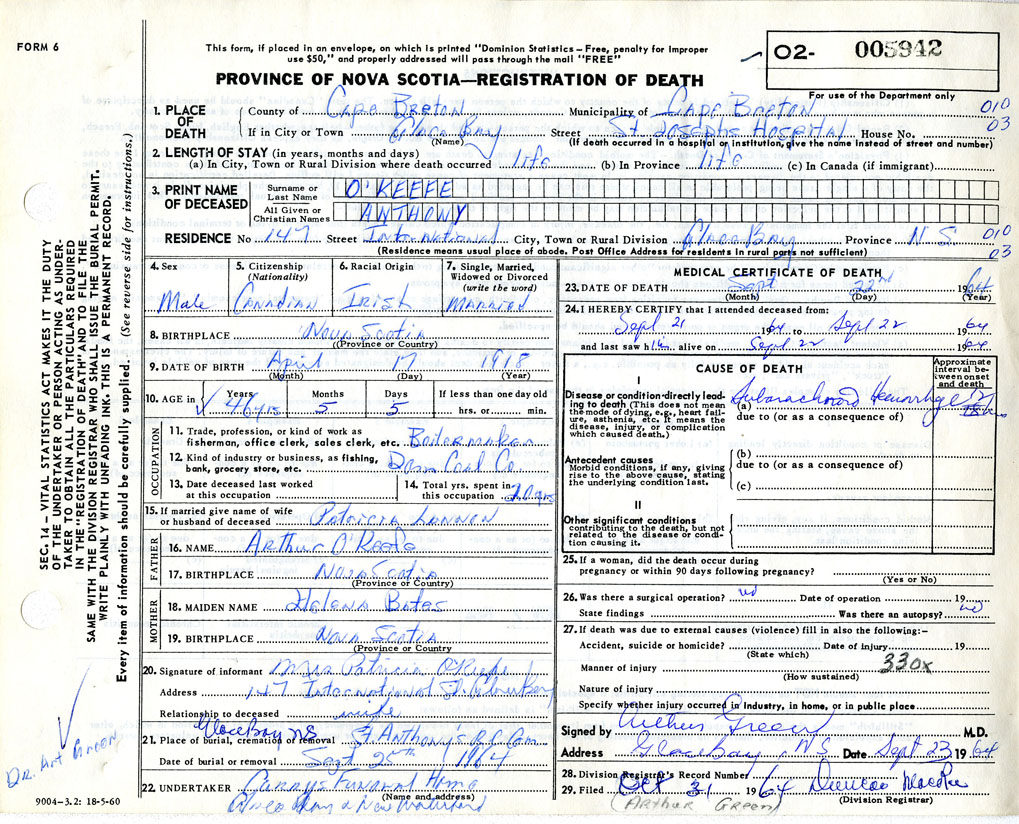 FORM 6
This form, if placed in an envelope, on which is printed "Dominion Statistics – Free, penalty for improper
use $50," and properly addressed will pass through the mail "FREE"
02- 005942
PROVINCE OF NOVA SCOTIA—REGISTRATION OF DEATH
For use of the Department only
1. PLACE OF DEATH County of Cape Breton Municipality of Cape Breton 010
If in City or Town Glace Bay (Name) Street St Josephs Hospital House No. 03
(If death occurred in a hospital or institution, give the name instead of street and number)
2. LENGTH OF STAY (in years, months and days)
(a) In City, Town or Rural Division where death occurred life (b) In Province life (c) In Canada (if immigrant)
3. PRINT NAME OF DECEASED Surname or Last Name O'KEEFE
All Given or Christian Names ANTHONY
RESIDENCE No 147 Street International City, Town or Rural Division Glace Bay Province N.S. 010
(Residence means usual place of abode. Post Office Address for residents in rural parts not sufficient) 03
4. Sex Male
5. Citizenship (Nationality) Canadian
6. Racial Origin Irish
7. Single, Married, Widowed or Divorced (write the word) Married
8. BIRTHPLACE Nova Scotia
(Province or Country)
9. DATE OF BIRTH April 17 1918
(Month) (Day) (Year)
10. AGE in Years 46 yrs Months 5 Days 5 If less than one day old hrs. or min.
OCCUPATION
11. Trade, profession, or kind of work as
fisherman, office clerk, sales clerk, etc. Boilermaker
12. Kind of industry or business, as fishing,
bank, grocery store, etc. Dom Coal Co.
13. Date deceased last worked
at this occupation
14. Total yrs. spent in
this occupation 20 yrs
15. If married give name of wife
or husband of deceased Patricia Lannon
FATHER
16. NAME Arthur O'Keefe
17. BIRTHPLACE Nova Scotia
(Province or Country)
MOTHER
18. MAIDEN NAME Helena Bates
19. BIRTHPLACE Nova Scotia
(Province or Country)
20. Signature of informant Mrs Patricia O'Keefe
Address 147 International St. Glace Bay
Relationship to deceased wife
Glace Bay NS
21. Place of burial, cremation or removal St. Anthony's R.C. Cem.
Date of burial or removal Sept 25th 1964
22. UNDERTAKER Currys Funeral Home
(Name and address)
Glace Bay & New Waterford
MEDICAL CERTIFICATE OF DEATH
23. DATE OF DEATH Sept 22nd 1964
(Month) (Day) (Year)
24. I HEREBY CERTIFY that I attended deceased from:
Sept 21 1964 to Sept 22 1964
and last saw him alive on Sept 22 1964
CAUSE OF DEATH
Approximate interval between onset and death
I
Disease or condition directly leading to death (This does not mean the mode of dying, e.g., heart failure, asthenia, etc. It means the disease, injury, or complication which caused death.)
(a) Subarachnoid Hemorrhage
due to (or as a consequence of)
Antecedent causes
Morbid conditions, if any, giving rise to the above cause, stating the underlying condition last.
(b)
due to (or as a consequence of)
(c)
II
Other significant conditions
contributing to the death, but not related to the disease or condition causing it.
25. If a woman, did the death occur during
pregnancy or within 90 days following pregnancy?
(Yes or No)
26. Was there a surgical operation? no Date of operation 19
State findings Was there an autopsy? no
27. If death was due to external causes (violence) fill in also the following:–
Accident, suicide or homicide? Date of injury 19
(State which)
Manner of injury 330x
(How sustained)
Nature of injury
Specify whether injury occurred in Industry, in home, or in public place
Signed by Arthur Green M.D.
Address Glace Bay, N.S. Date Sept 23 1964
28. Division Registrar's Record Number
29. Filed Oct 31 1964 Duncan
(Division Registrar)
(Arthur Green)
SEC. 14 – VITAL STATISTICS ACT MAKES IT THE DUTY
OF THE UNDERTAKER OR PERSON ACTING AS UNDER-
TAKER TO OBTAIN ALL THE PARTICULARS REQUIRED
IN THE "REGISTRATION OF DEATH" AND TO FILE THE
SAME WITH THE DIVISION REGISTRAR WHO SHALL ISSUE THE BURIAL PERMIT.
WRITE PLAINLY WITH UNFADING INK. THIS IS A PERMANENT RECORD.
Every item of information should be carefully supplied. (See reverse side for instructions.)
DR. Art GREEN
9004–3.2: 18-5-60